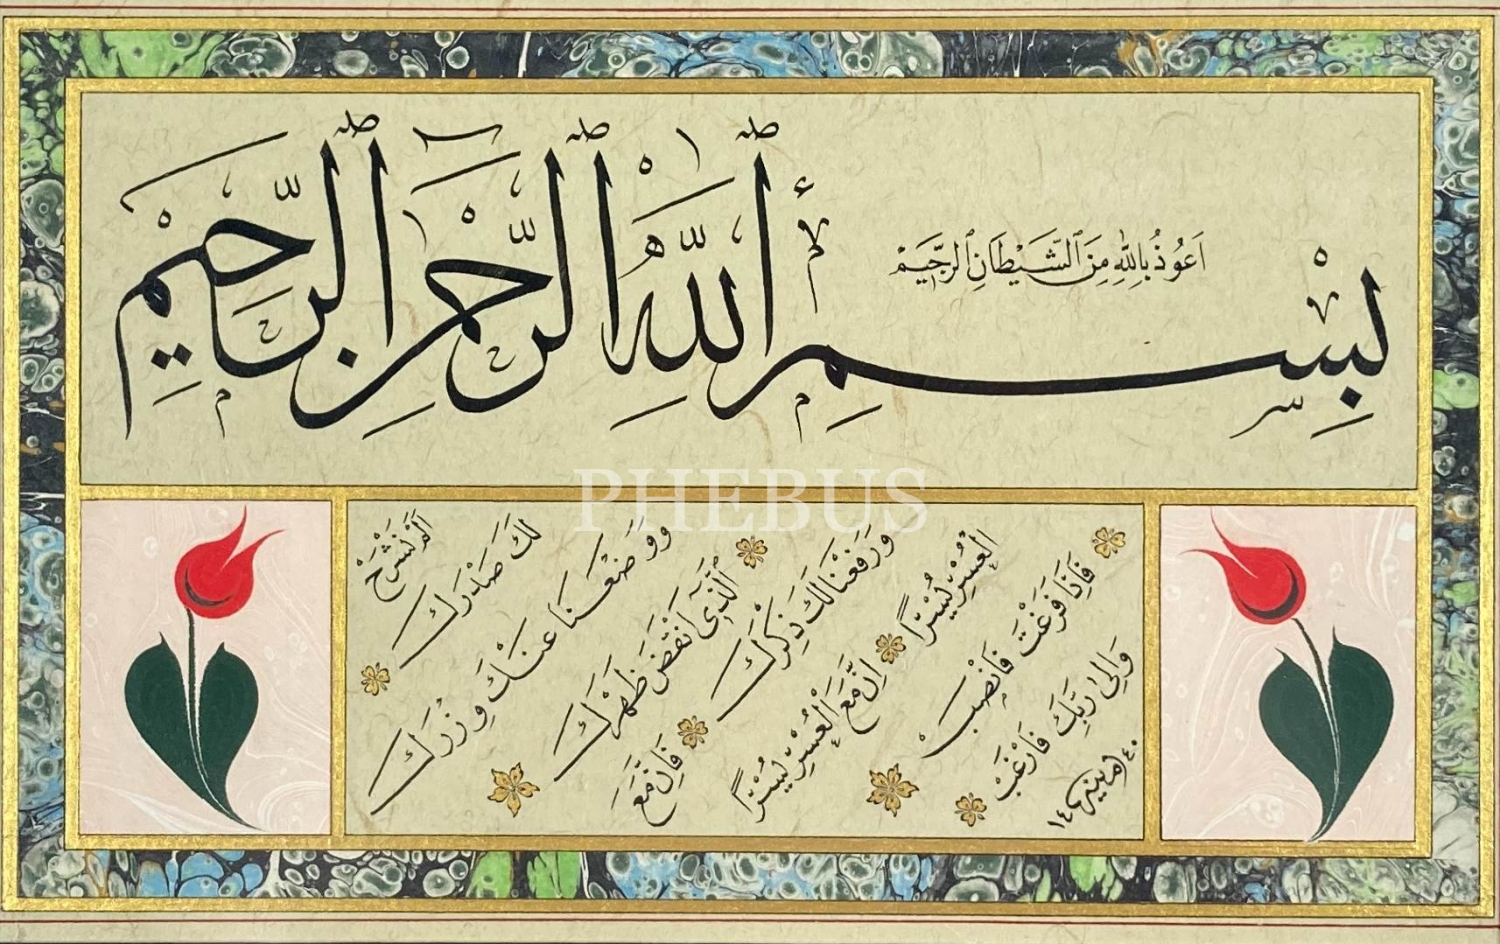 اَعُوذُ بِاللّٰهِ مِنَ ٱلشَّيْطَانِ ٱلرَّجِيمِ
بِسْمِ ٱللّٰهِ ٱلرَّحْمٰنِ ٱلرَّحِيمِ
PHEBUS
اَلَمْ نَشْرَحْ
لَكَ صَدْرَكَ
وَوَضَعْنَا عَنْكَ وِزْرَكَ
اَلَّذٖٓى اَنْقَضَ ظَهْرَكَ
وَرَفَعْنَا لَكَ ذِكْرَكَ
فَاِنَّ مَعَ
الْعُسْرِ يُسْرًا
اِنَّ مَعَ الْعُسْرِ يُسْرًا
فَاِذَا فَرَغْتَ فَانْصَبْ
وَاِلٰى رَبِّكَ فَارْغَبْ